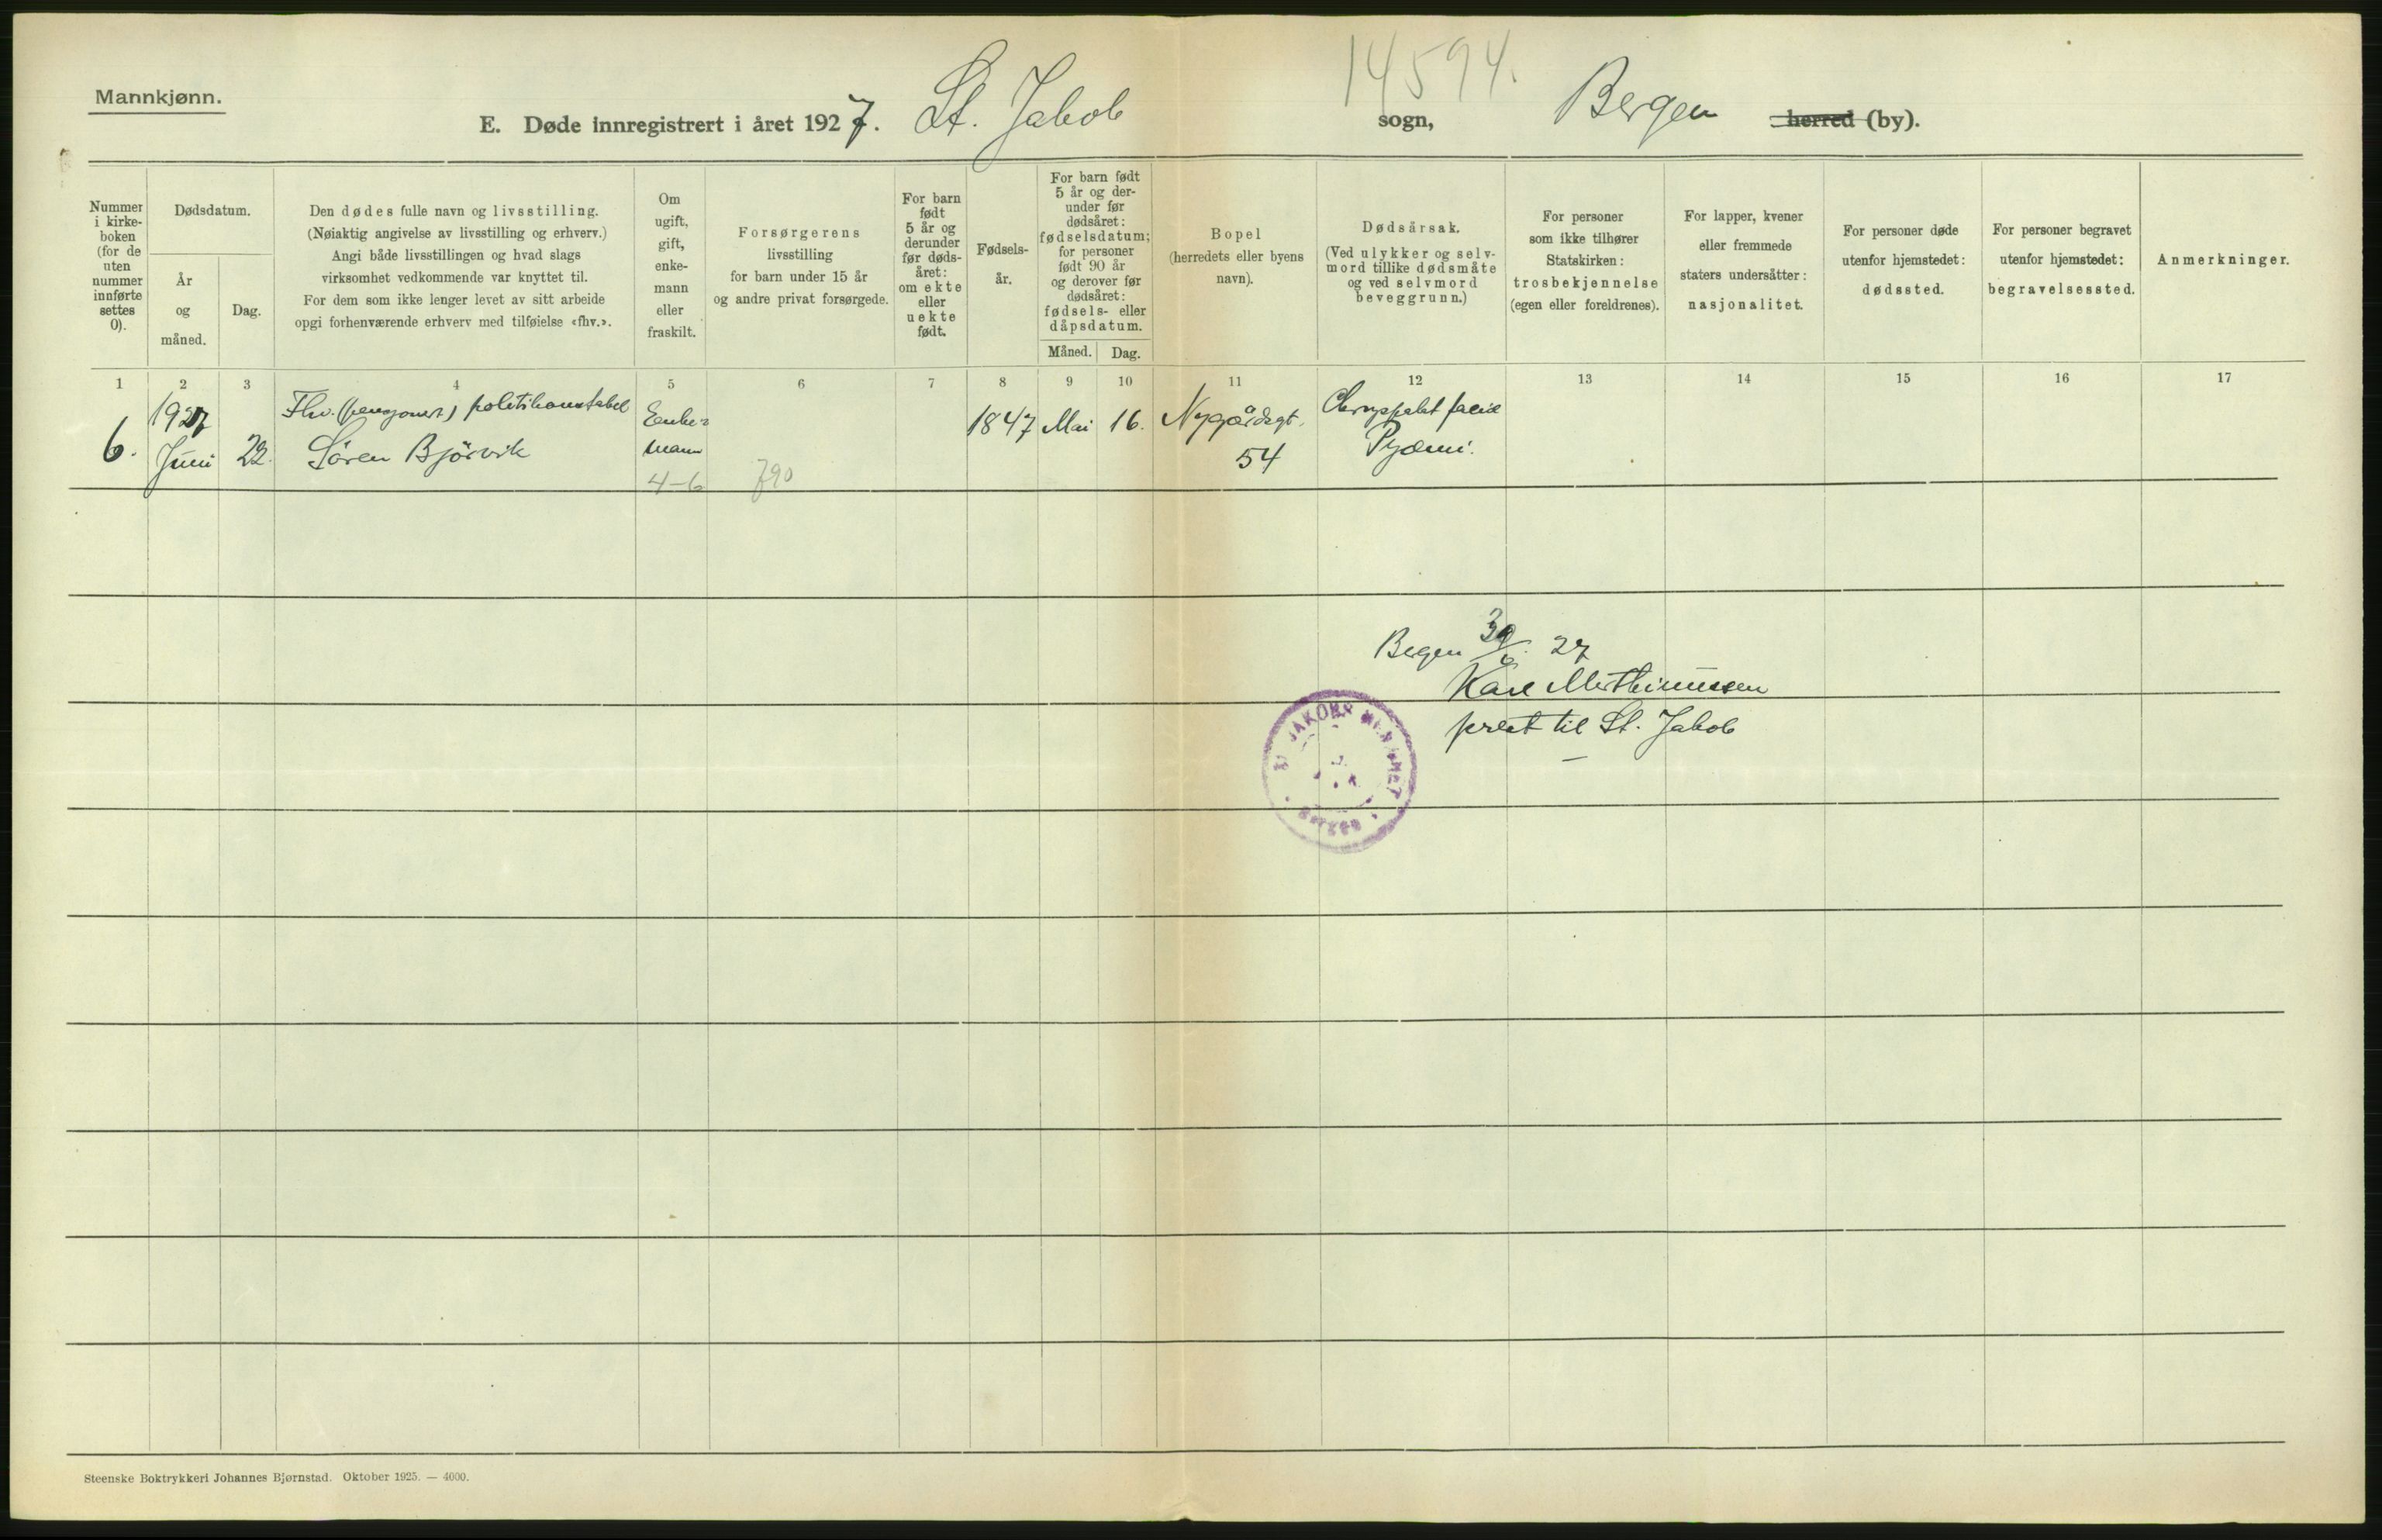 14594.
Mannkjønn.
E. Døde innregistrert i året 1927. St. Jakob sogn, Bergen herred (by).
Nummer
i kirke-
boken
(for de
uten
nummer
innførte
settes
0).
Dødsdatum.
År
og
måned.
Dag.
Den dødes fulle navn og livsstilling.
(Nøiaktig angivelse av livsstilling og erhverv.)
Angi både livsstillingen og hvad slags
virksomhet vedkommende var knyttet til.
For dem som ikke lenger levet av sitt arbeide
opgi forhenværende erhverv med tilføielse «fhv.».
Om
ugift,
gift,
enke-
mann
eller
fraskilt.
Forsørgerens
livsstilling
for barn under 15 år
og andre privat forsørgede.
For barn
født
5 år og
derunder
før døds-
året:
om ekte
eller
uekte
født.
Fødsels-
år.
For barn født
5 år og der-
under før
dødsåret:
fødselsdatum;
for personer
født 90 år
og derover før
dødsåret:
fødsels- eller
dåpsdatum.
Måned.
Dag.
Bopel
(herredets eller byens
navn).
Dødsårsak.
(Ved ulykker og selv-
mord tillike dødsmåte
og ved selvmord
beveggrunn.)
For personer
som ikke tilhører
Statskirken:
trosbekjennelse
(egen eller foreldrenes).
For lapper, kvener
eller fremmede
staters undersåtter:
nasjonalitet.
For personer døde
utenfor hjemstedet:
dødssted.
For personer begravet
utenfor hjemstedet:
begravelsessted.
Anmerkninger.
1 2 3 4 5 6 7 8 9 10 11 12 13 14 15 16 17
6.
1927
Juni
22.
Fhv. (pensjonert) politikonstabel
Sören Björvik
Enke-
mann
4-6
790
1847
Mai
16.
Nygårdsgt.
54
Pyæmi.
Bergen 30/6 27
prest til St. Jakob
ST JAKOBS MENIGHET
Bergen
Steenske Boktrykkeri Johannes Bjørnstad. Oktober 1925. — 4000.